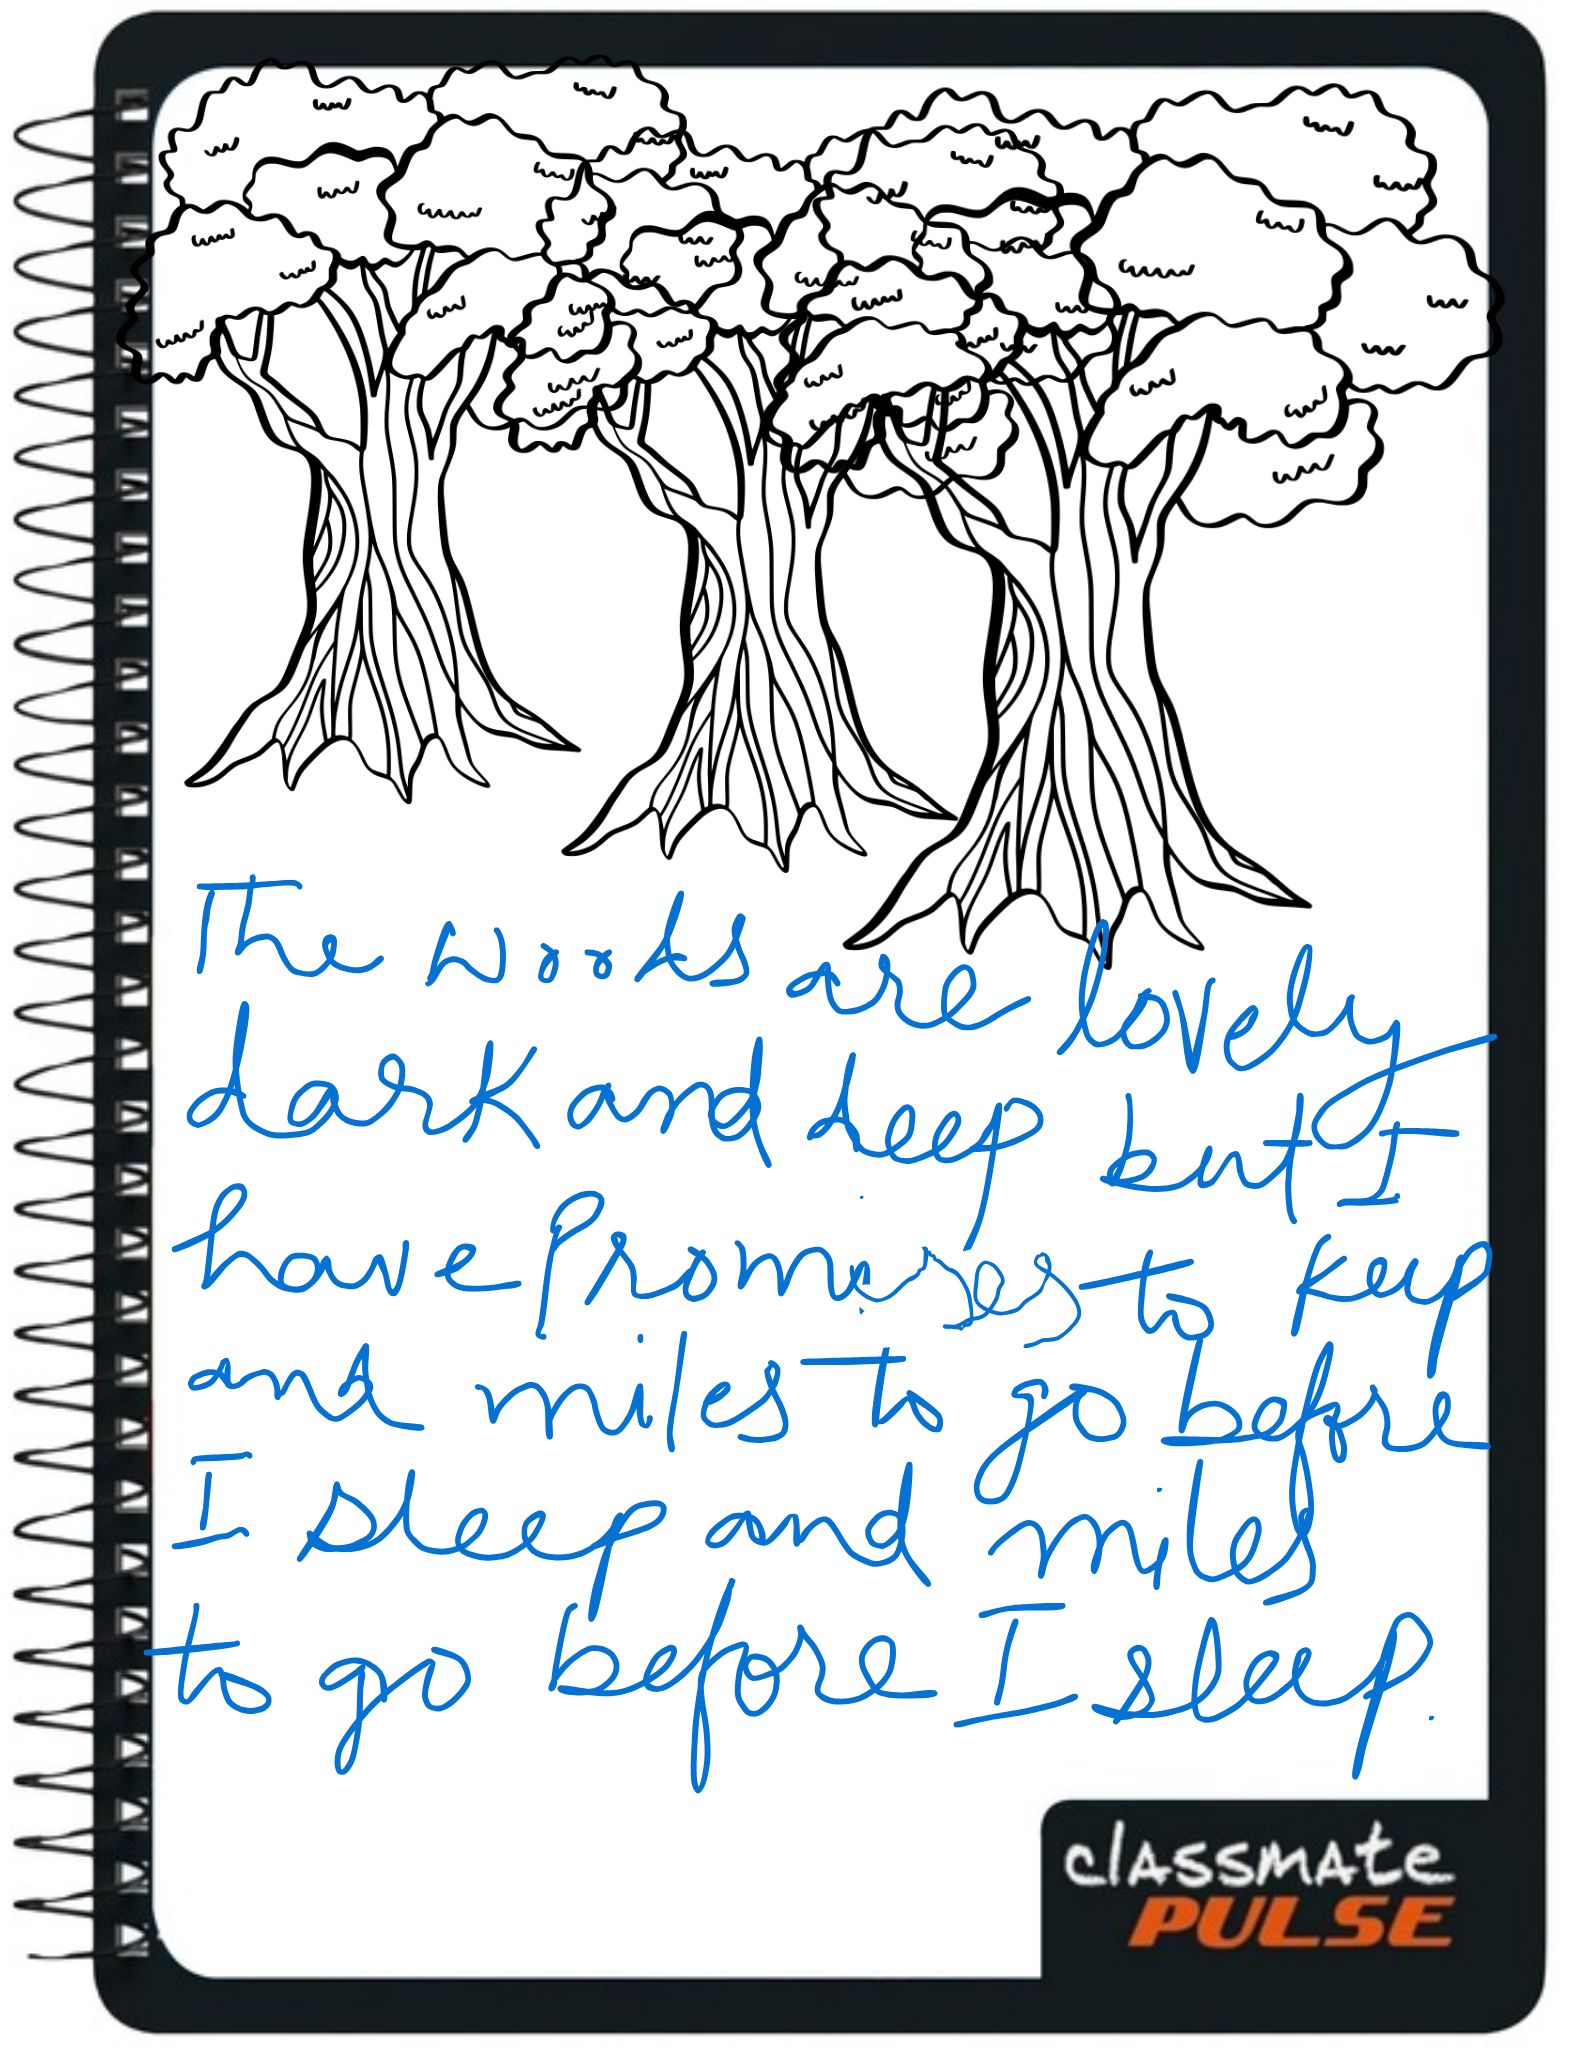 The woods are lovely
dark and deep but I
have promises to keep
and miles to go before
I sleep and miles
to go before I sleep.
classmate
PULSE